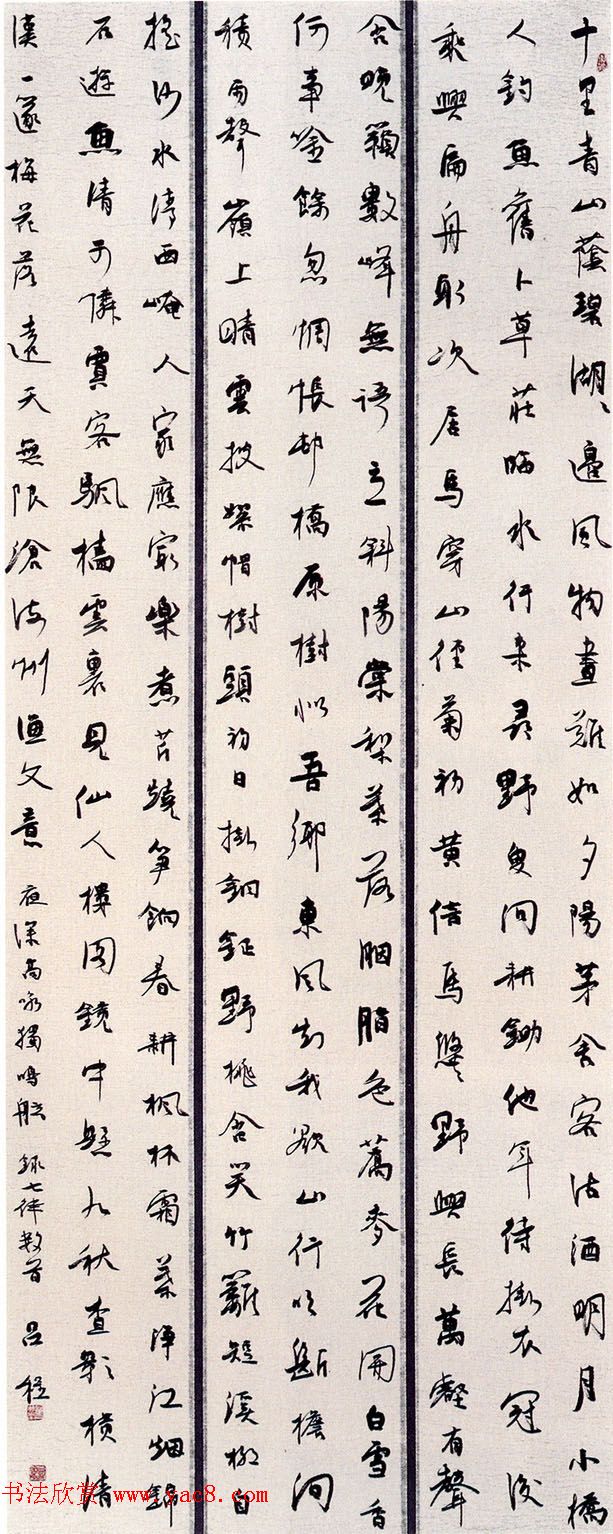 十里青山蔭碧湖湖邊風物畫難如夕陽茅舍客沽酒明月小橋
人釣魚舊卜草莊臨水竹来尋野叟问耕鋤他年待掛衣冠後
乘興扁舟取次居馬穿山徑菊初黄信馬悠悠野興長萬壑有聲
含晚籟數峰無語立斜陽棠梨葉落胭脂色蕎麥花開白雪香
何事吟餘忽惆悵村橋原樹似吾鄉東風知我欲山行吹斷檐间
積雨聲嶺上晴雲披絮帽樹頭初日掛銅鉦野桃含笑竹籬短溪柳自
搖沙水清西崦人家應最樂煮芹燒筍餉春耕楓林霜葉淨江烟錦
石遊魚清可憐賈客帆檣雲裏見仙人樓閣鏡中懸九秋查影横清
漢一邃梅花落遠天無限滄海州漁父意夜深高咏獨鳴舷錄七律數首吕程
书法欣赏 www.yac8.com